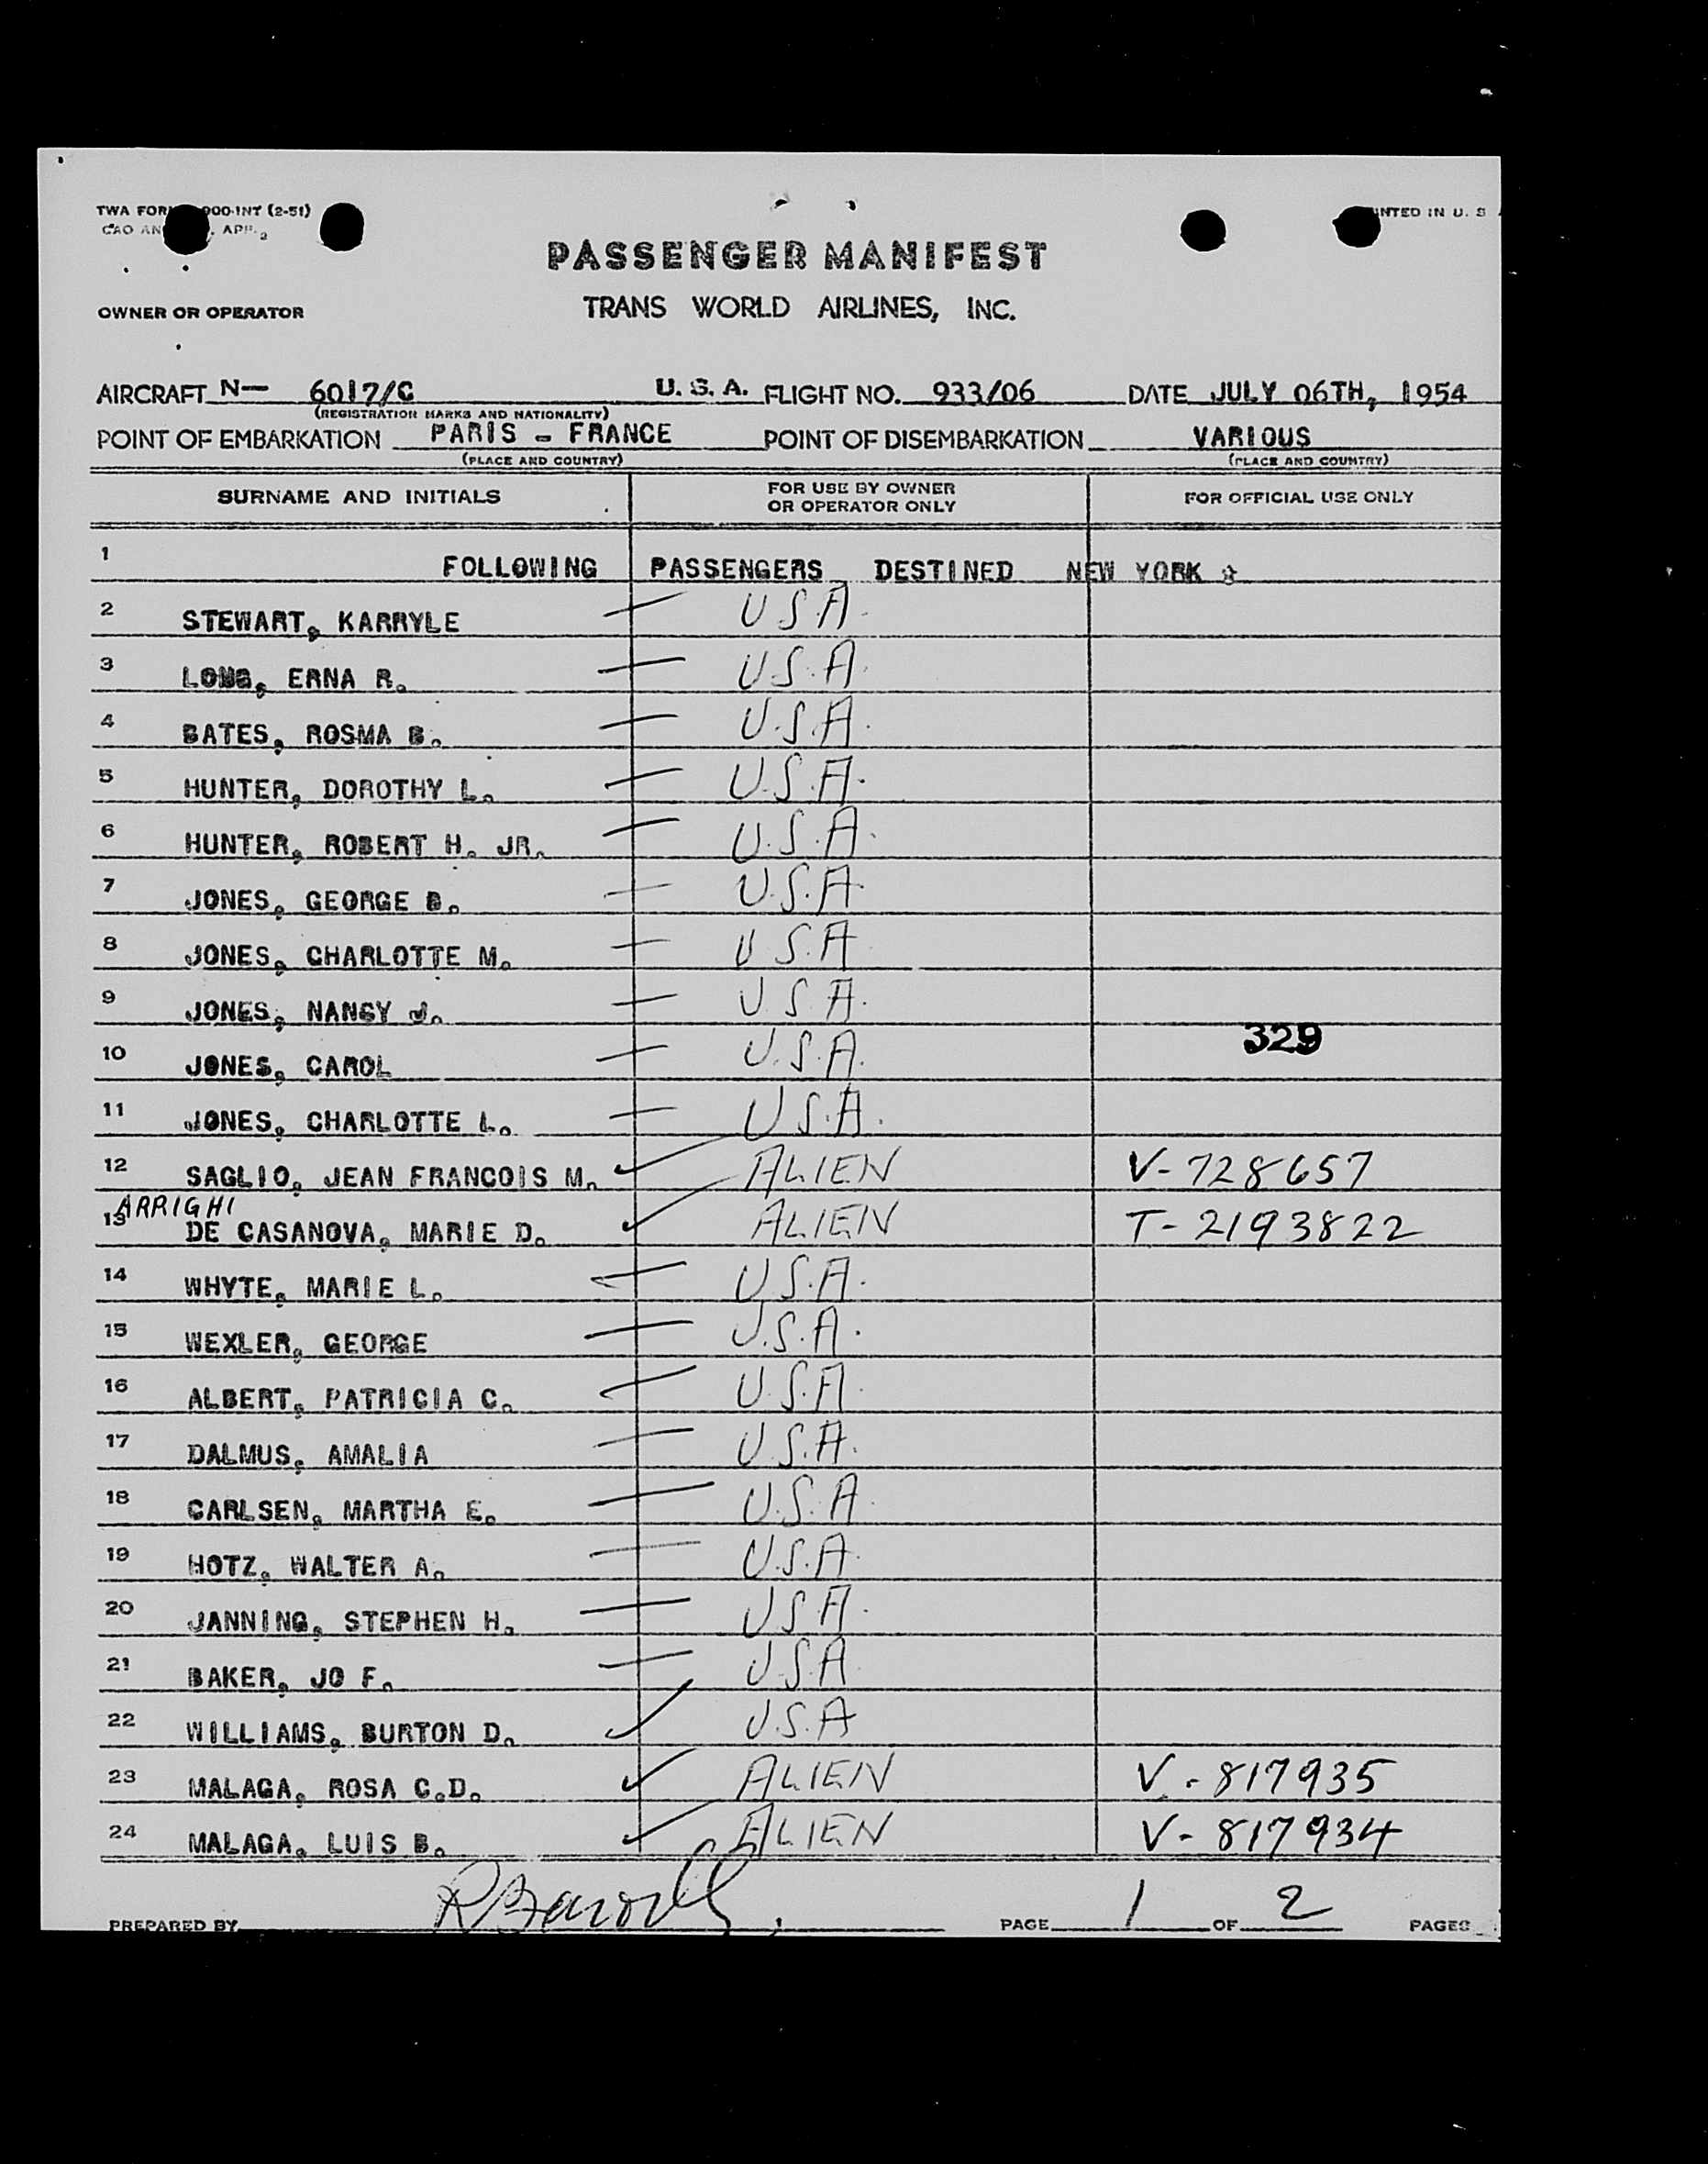 TWA FORM 900-INT (2-51)
PRINTED IN U. S
PASSENGER MANIFEST
OWNER OR OPERATOR TRANS WORLD AIRLINES, INC.
AIRCRAFT N— 6017/C U. S. A. FLIGHT NO. 933/06 DATE JULY 06TH, 1954
(REGISTRATION MARKS AND NATIONALITY)
POINT OF EMBARKATION PARIS - FRANCE POINT OF DISEMBARKATION VARIOUS
(PLACE AND COUNTRY) (PLACE AND COUNTRY)
SURNAME AND INITIALS FOR USE BY OWNER OR OPERATOR ONLY FOR OFFICIAL USE ONLY
1 FOLLOWING PASSENGERS DESTINED NEW YORK
2 STEWART, KARRYLE — U S.A.
3 LONG, ERNA R. — U.S.A.
4 BATES, ROSMA B. — U.S.A.
5 HUNTER, DOROTHY L. — U.S.A.
6 HUNTER, ROBERT H. JR. — U.S.A.
7 JONES, GEORGE B. — U.S.A.
8 JONES, CHARLOTTE M. — U S.A
9 JONES, NANCY J. — U S A.
329
10 JONES, CAROL — U.S.A.
11 JONES, CHARLOTTE L. — U S.A.
12 SAGLIO, JEAN FRANCOIS M. ✓ ALIEN V-728657
ARRIGHI
13 DE CASANOVA, MARIE D. ✓ ALIEN T-2193822
14 WHYTE, MARIE L. — U S.A.
15 WEXLER, GEORGE — U.S.A.
16 ALBERT, PATRICIA C. — U S.A.
17 DALMUS, AMALIA — U.S.A.
18 CARLSEN, MARTHA E. — U.S.A.
19 HOTZ, WALTER A. — U.S.A.
20 JANNING, STEPHEN H. — U S A.
21 BAKER, JO F. — U.S.A
22 WILLIAMS, BURTON D. ✓ U.S.A
23 MALAGA, ROSA C.D. ✓ ALIEN V-817935
24 MALAGA, LUIS B. ✓ ALIEN V-817934
PREPARED BY PAGE 1 OF 2 PAGES